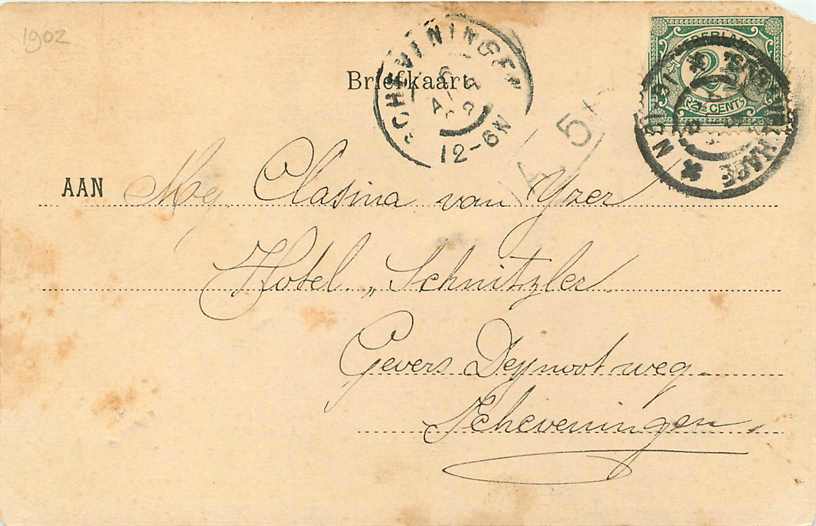 1902
Briefkaart
SCHEVENINGEN
12-6N
NEDERLAND
2½ CENT
'S GRAVENHAGE
5
AAN Mej. Clasina van Yzer
Hotel „Schnitzler
Gevers Deynootweg.
Scheveningen.